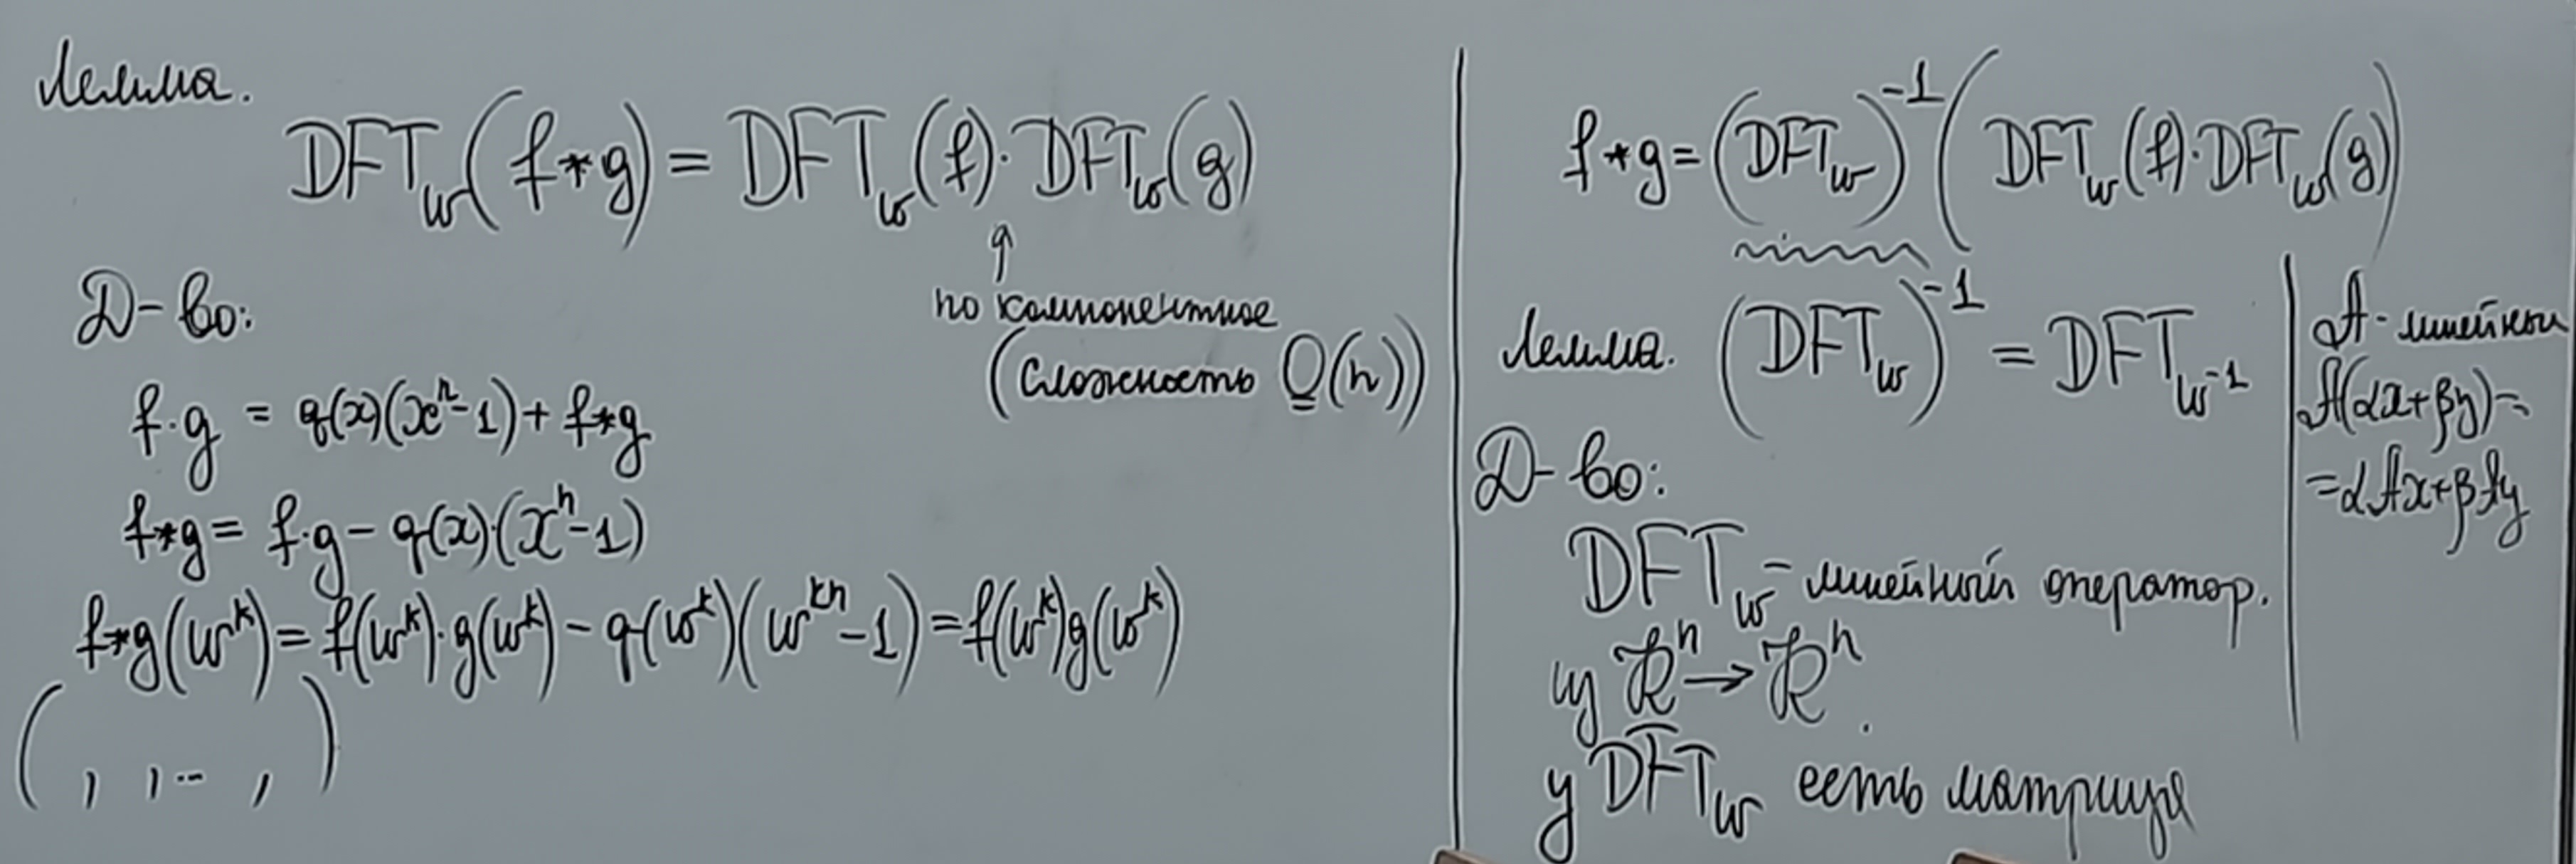 Лемма.
DFT_w(f*g) = DFT_w(f)·DFT_w(g)
↑
по компонентное
(сложность O(n))
Д-во:
f·g = q(x)(x^n-1)+f*g
f*g = f·g - q(x)·(x^n-1)
f*g(w^k) = f(w^k)·g(w^k) - q(w^k)(w^{kn}-1) = f(w^k)g(w^k)
( , ,.. , )
f*g = (DFT_w)^{-1}(DFT_w(f)·DFT_w(g))
Лемма. (DFT_w)^{-1} = DFT_{w^{-1}}
A - линейный
A(αx+βy)=
=αAx+βAy
Д-во:
DFT_w - линейный оператор.
из R^n → R^n.
у DFT_w есть матрица